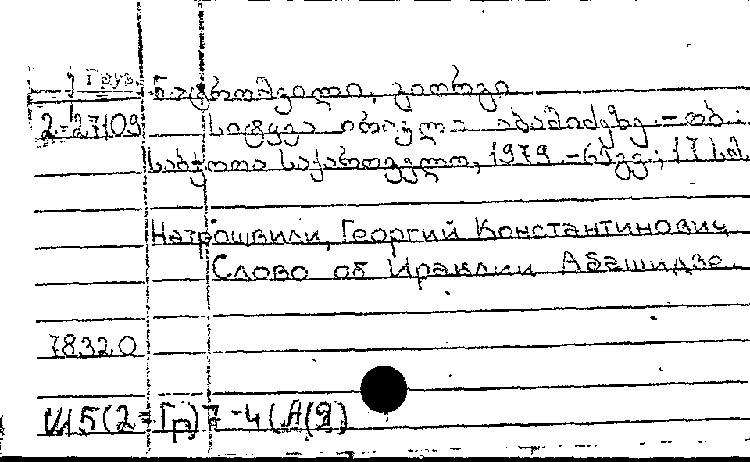 Груз.
ნატროშვილი, გიორგი
2-27109 სიტყვა ირაკლი აბაშიძეზე. – თბ.:
საბჭოთა საქართველო, 1979. – 17 სმ.
Натрошвили, Георгий Константинович
Слово об Ираклии Абашидзе.
78320
Ш5(2=Гр)7-4(А(9)